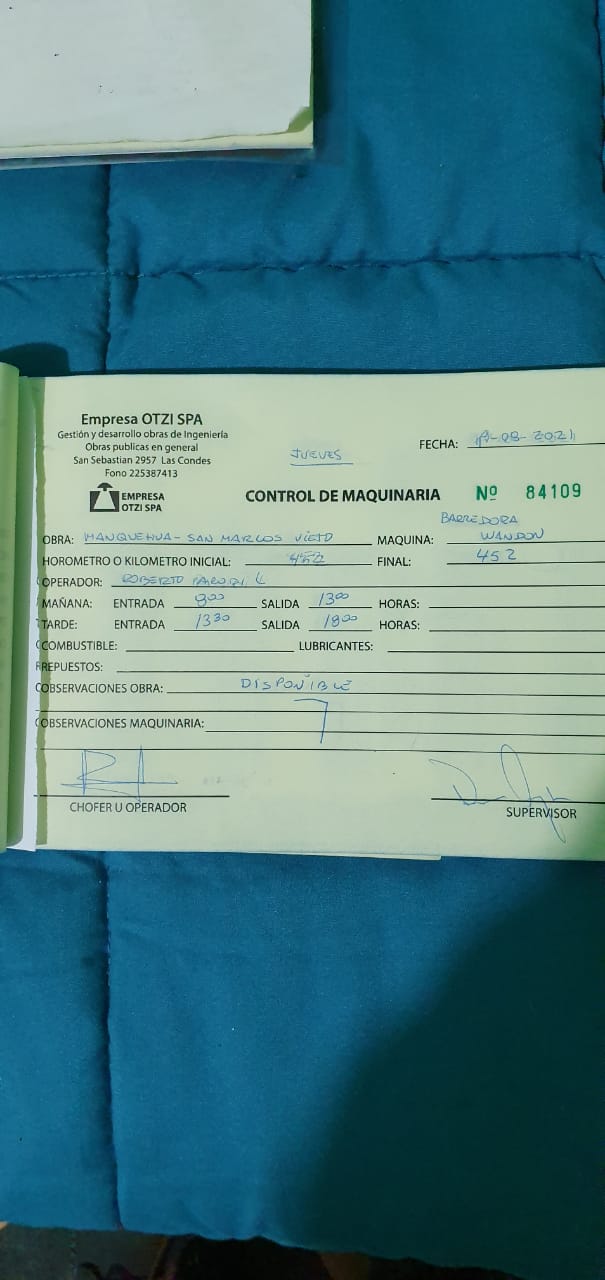 Empresa OTZI SPA
Gestión y desarrollo obras de Ingeniería
Obras publicas en general
San Sebastian 2957 Las Condes
Fono 225387413
EMPRESA
OTZI SPA
JUEVES
FECHA: -08-2021
CONTROL DE MAQUINARIA Nº 84109
BARREDORA
OBRA: MANQUEHUA - SAN MARCOS MAQUINA: WANDON
HOROMETRO O KILOMETRO INICIAL: 452 FINAL: 452
OPERADOR: ROBERTO
MAÑANA: ENTRADA 800 SALIDA 1300 HORAS:
TARDE: ENTRADA 1330 SALIDA 1800 HORAS:
COMBUSTIBLE: LUBRICANTES:
REPUESTOS:
OBSERVACIONES OBRA: DISPONIBLE
OBSERVACIONES MAQUINARIA:
CHOFER U OPERADOR
SUPERVISOR